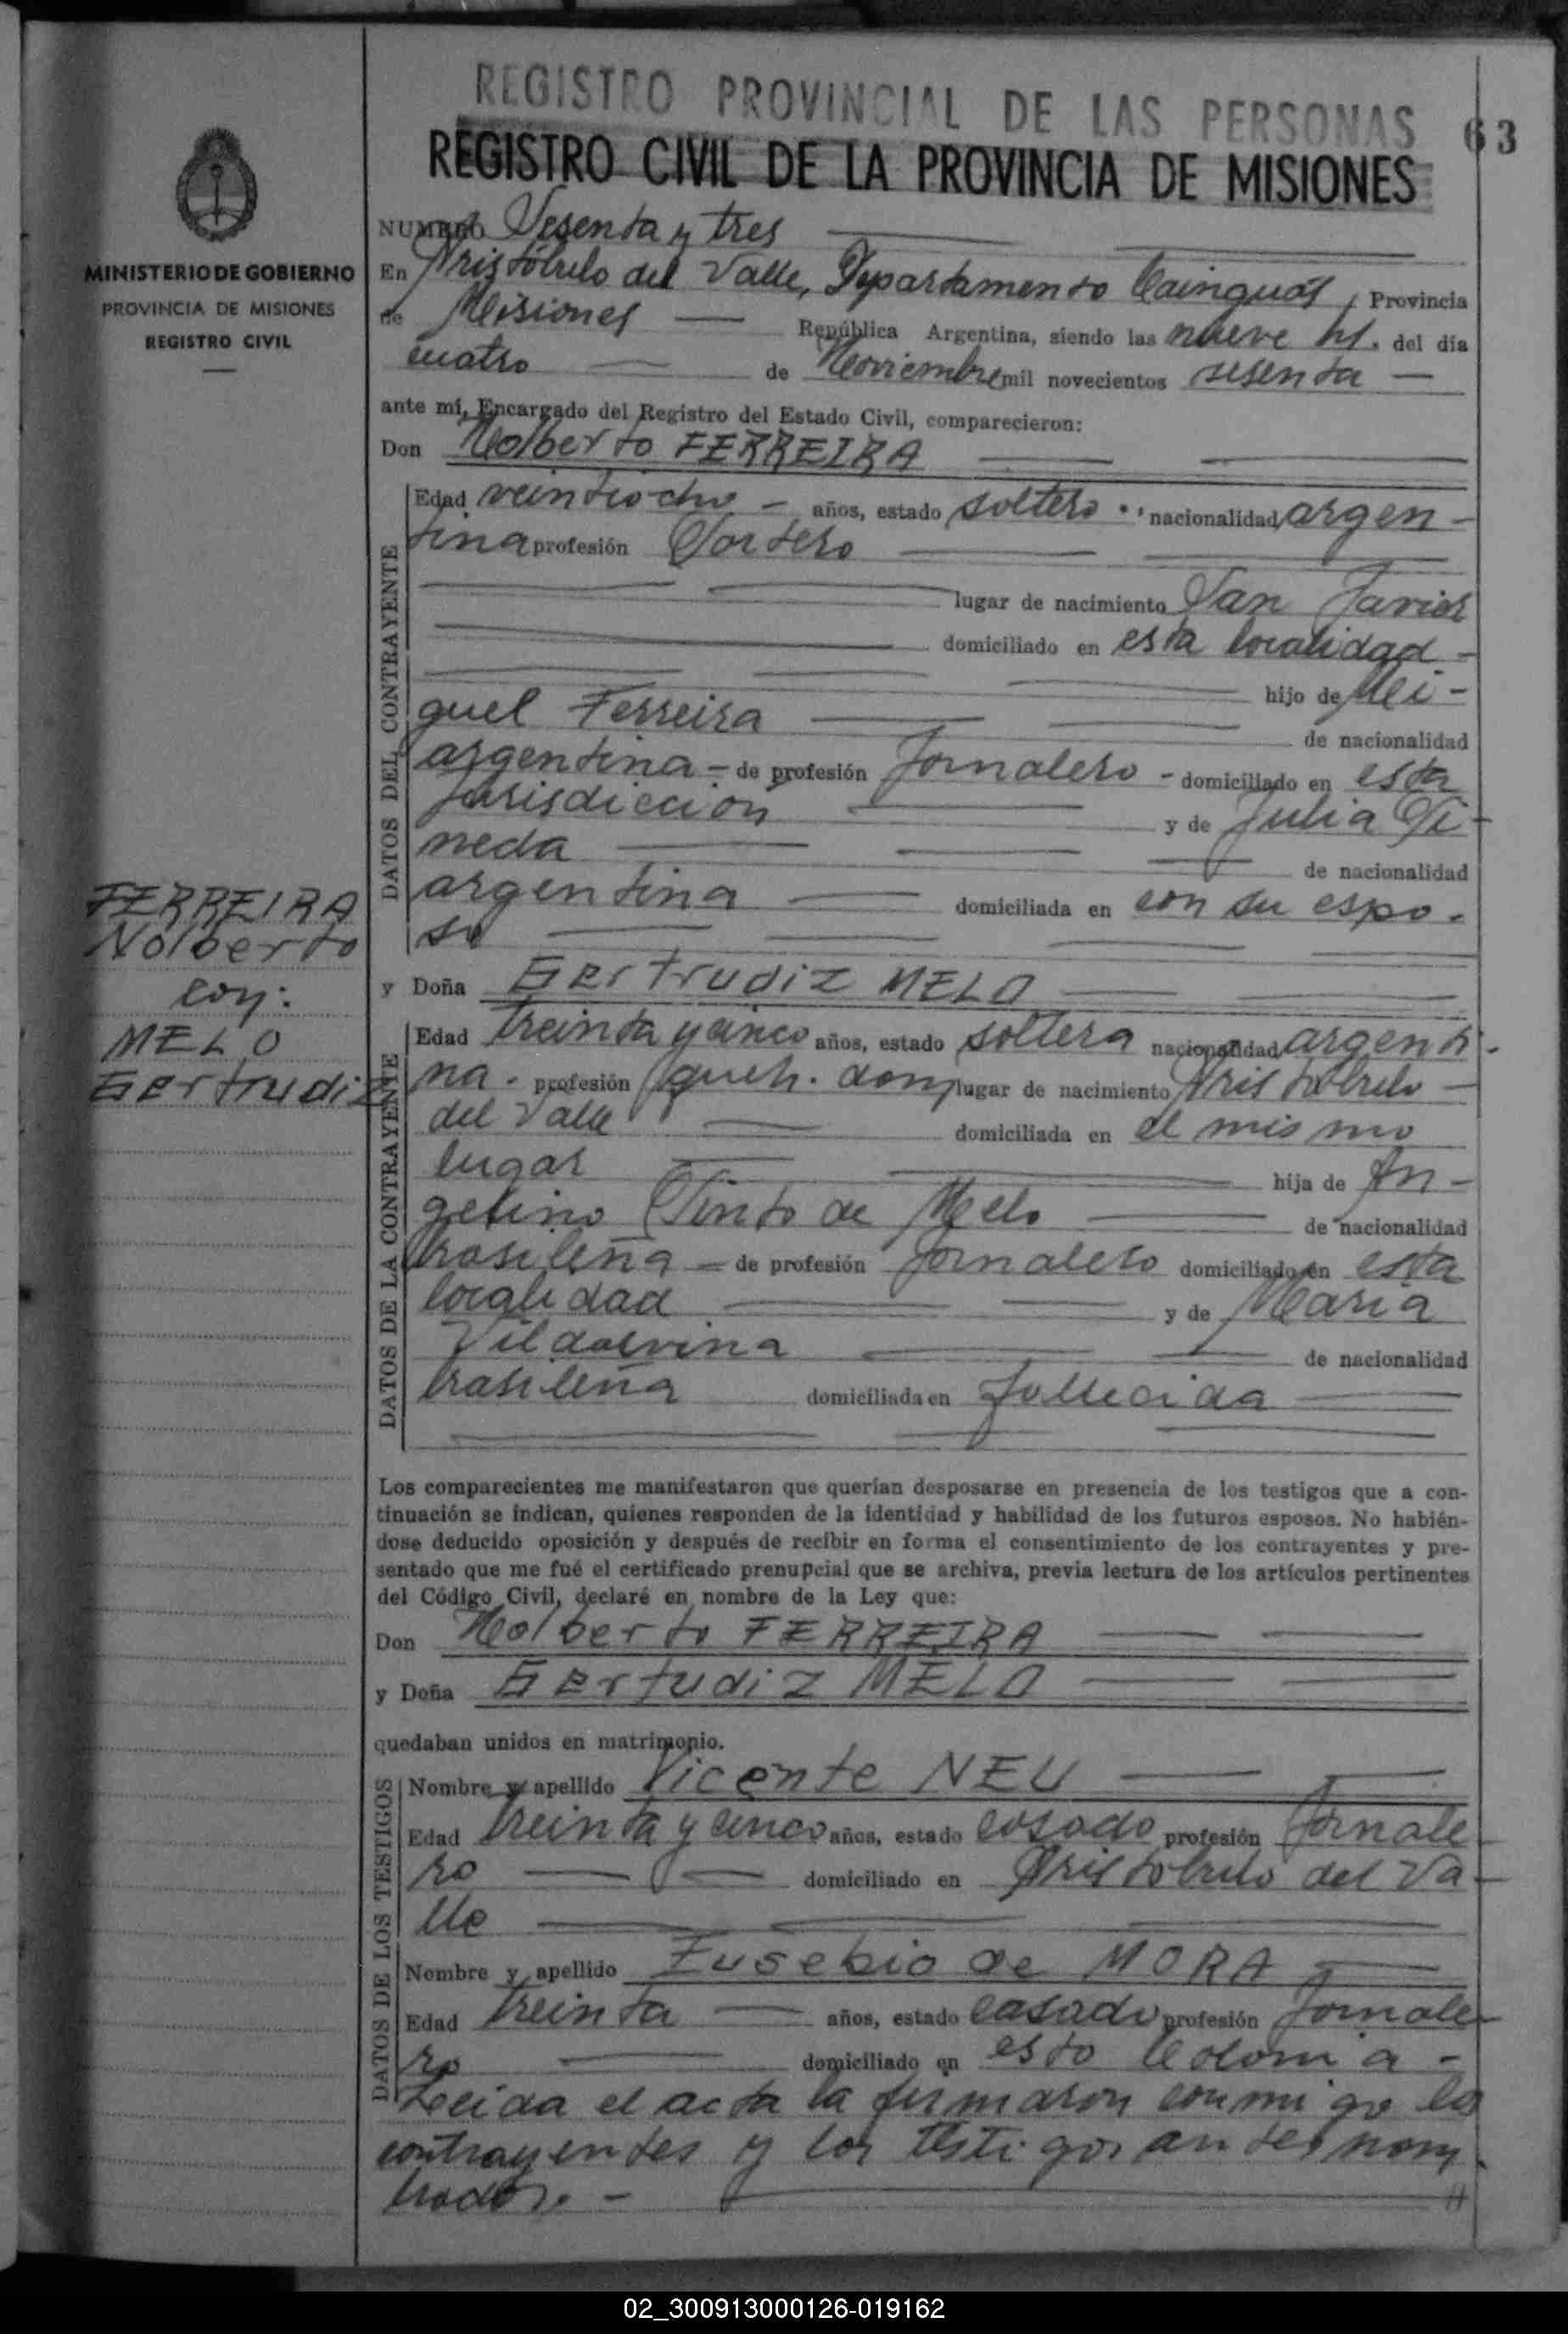 REGISTRO PROVINCIAL DE LAS PERSONAS
63
REGISTRO CIVIL DE LA PROVINCIA DE MISIONES
MINISTERIO DE GOBIERNO
PROVINCIA DE MISIONES
REGISTRO CIVIL
NUMERO Sesenta y tres
En Aristóbulo del Valle, Departamento Cainguás, Provincia
de Misiones República Argentina, siendo las nueve hs. del día
cuatro de Noviembre mil novecientos sesenta
ante mí, Encargado del Registro del Estado Civil, comparecieron:
Don Nolberto FERREIRA
DATOS DEL CONTRAYENTE
Edad veintiocho - años, estado soltero nacionalidad argen-
tina profesión
lugar de nacimiento San Javier
domiciliado en esta localidad -
hijo de Mi-
guel Ferreira de nacionalidad
argentina - de profesión Jornalero - domiciliado en esta
Jurisdicción y de Julia Pi-
neda de nacionalidad
argentina domiciliada en con su espo-
so
FERREIRA
Nolberto
con:
MELO
Gertrudiz
y Doña Gertrudiz MELO
DATOS DE LA CONTRAYENTE
Edad treinta y cinco años, estado soltera nacionalidad argenti-
na - profesión queh. dom. lugar de nacimiento Aristobulo -
del Valle domiciliada en el mismo
lugar hija de An-
gelino Pinto de Melo de nacionalidad
brasileña - de profesión Jornalero domiciliado en esta
localidad y de Maria
de nacionalidad
brasileña domiciliada en fallecida
Los comparecientes me manifestaron que querían desposarse en presencia de los testigos que a con-
tinuación se indican, quienes responden de la identidad y habilidad de los futuros esposos. No habién-
dose deducido oposición y después de recibir en forma el consentimiento de los contrayentes y pre-
sentado que me fué el certificado prenupcial que se archiva, previa lectura de los artículos pertinentes
del Código Civil, declaré en nombre de la Ley que:
Don Nolberto FERREIRA
y Doña Gertudiz MELO
quedaban unidos en matrimonio.
DATOS DE LOS TESTIGOS
Nombre y apellido Vicente NEU
Edad treinta y cinco años, estado casado profesión Jornale-
ro domiciliado en Aristobulo del Va-
lle
Nombre y apellido Eusebio de MORA
Edad treinta años, estado casado profesión Jornale-
ro domiciliado en esta Colonia -
Leida el acta la firmaron conmigo los
contrayentes y los testigos antes nom-
brados. -
02_300913000126-019162